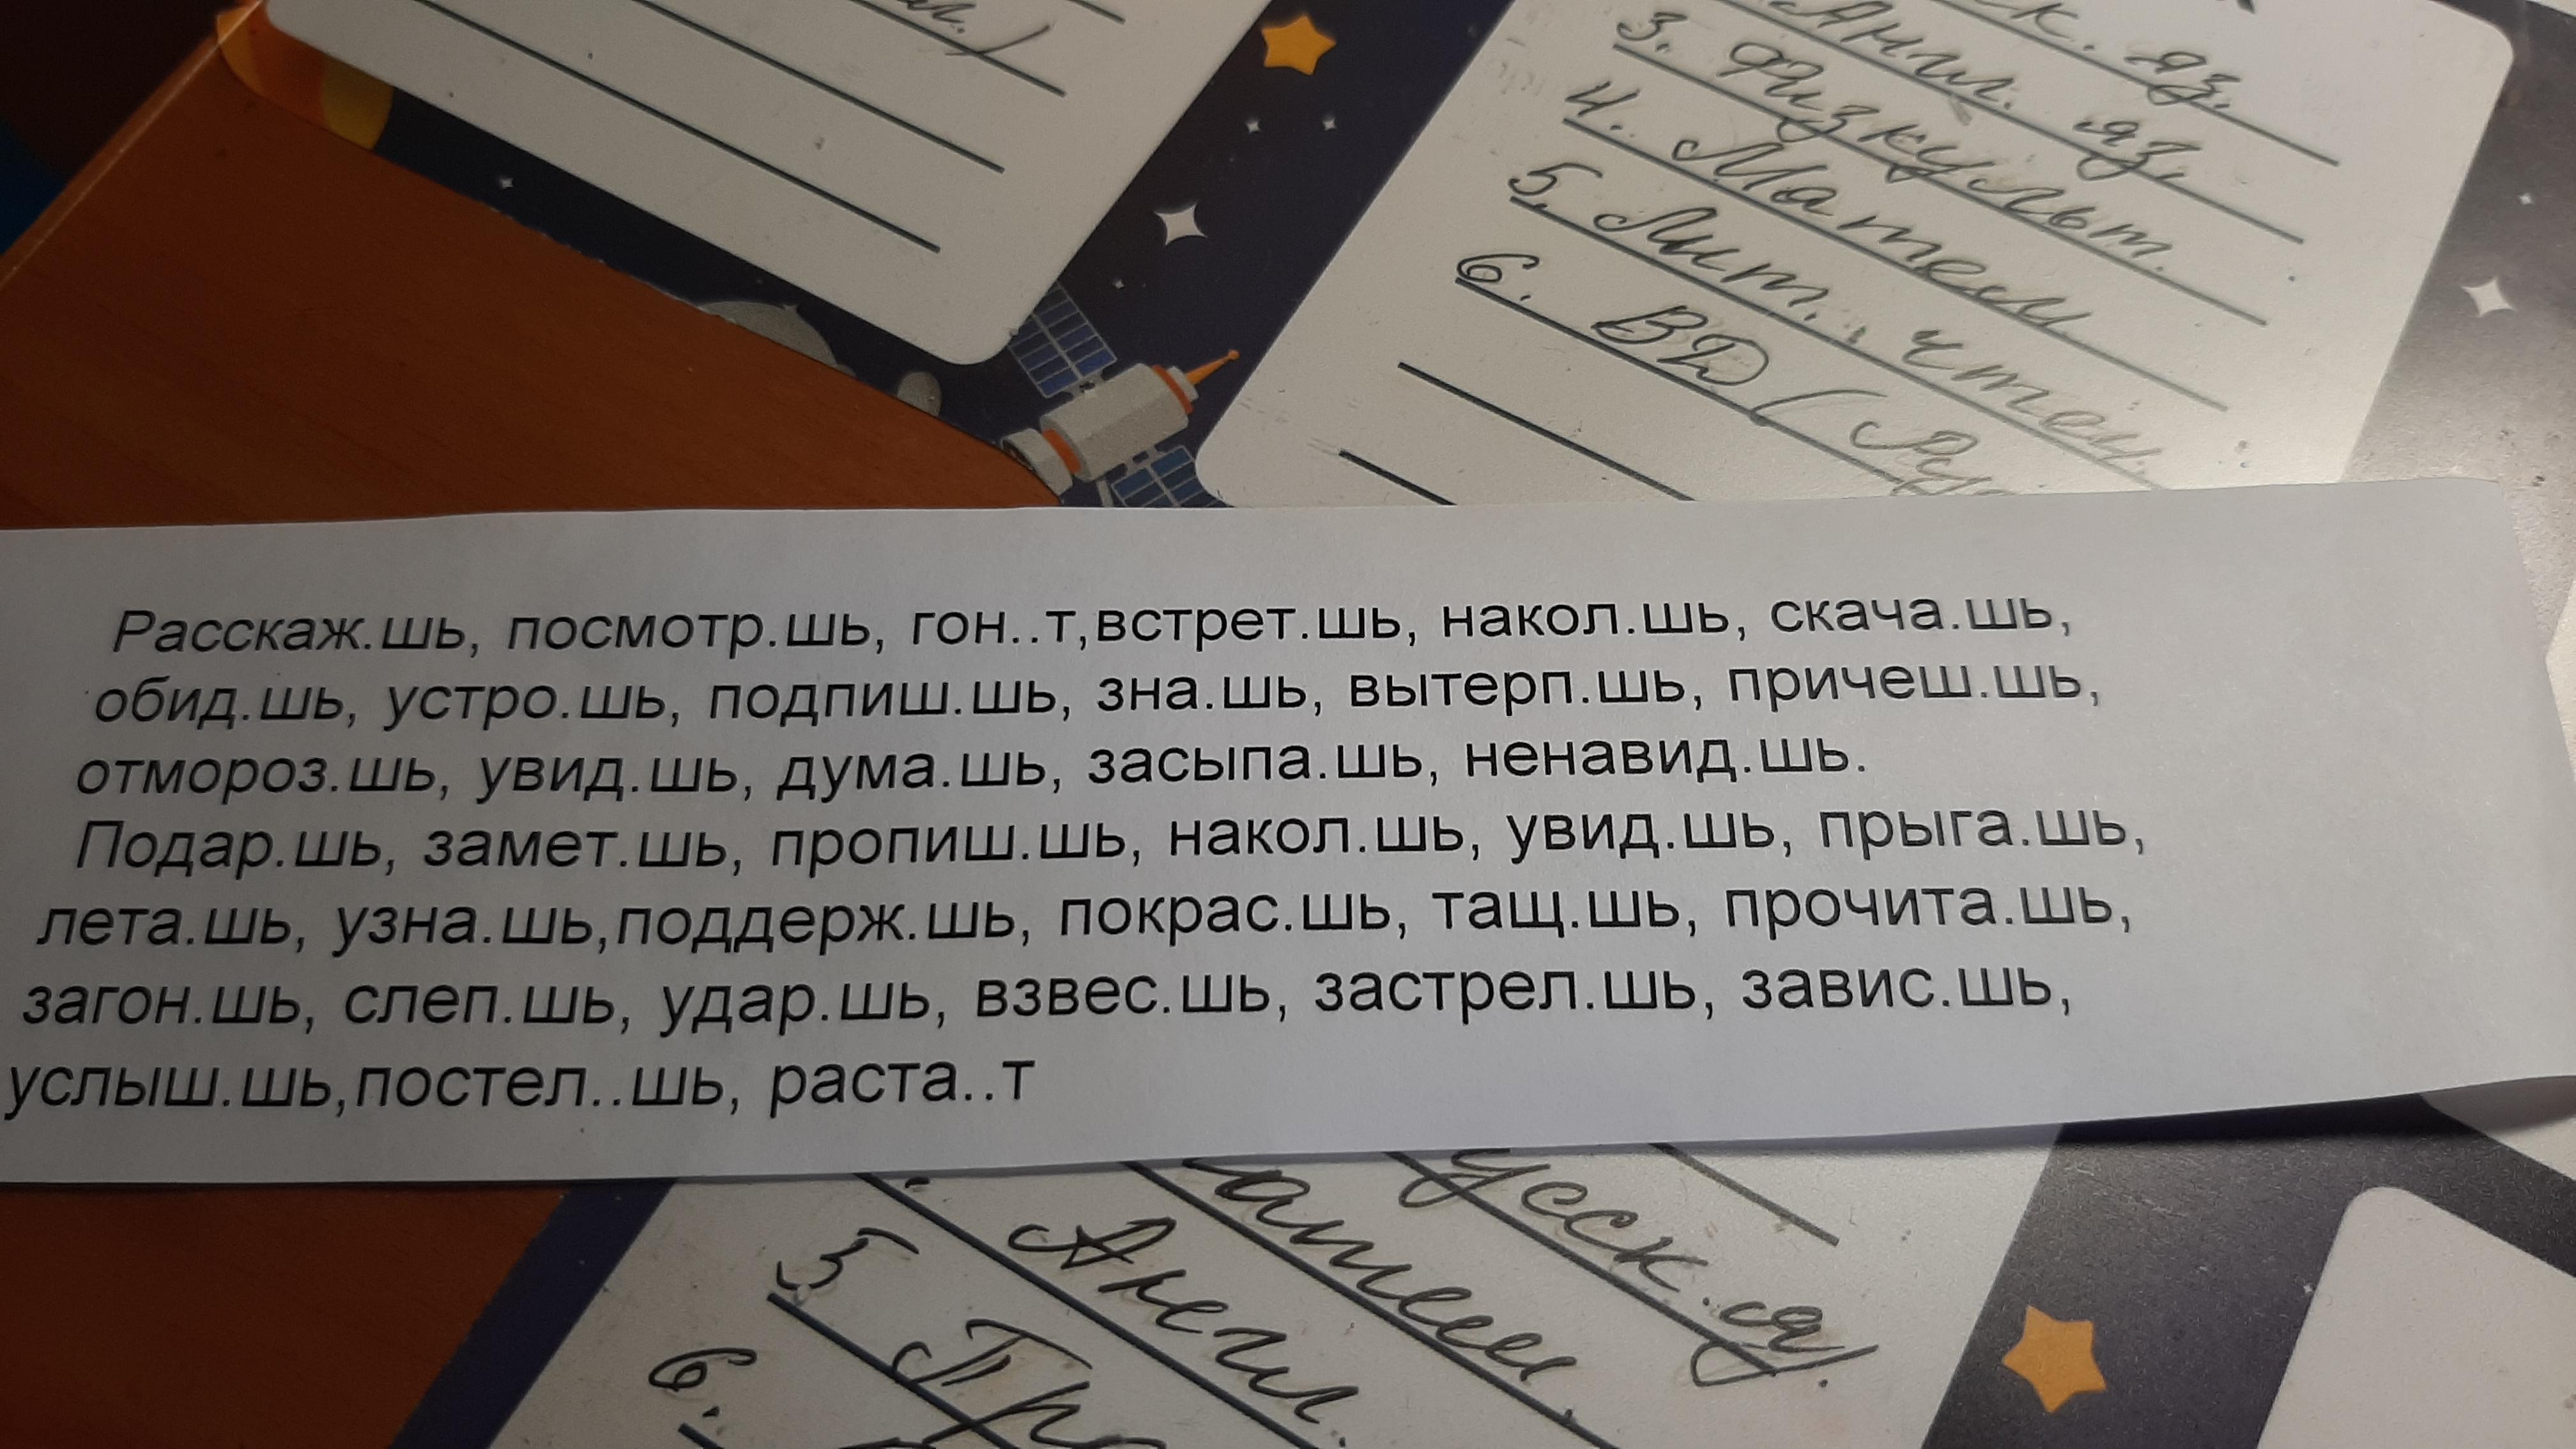 ил.)
ск. яз.
Англ. яз.
3. Физкульт.
4. Матем
5. Лит. чтен.
6. ВД (Рус
Расскаж.шь, посмотр.шь, гон..т,встрет.шь, накол.шь, скача.шь,
обид.шь, устро.шь, подпиш.шь, зна.шь, вытерп.шь, причеш.шь,
отмороз.шь, увид.шь, дума.шь, засыпа.шь, ненавид.шь.
Подар.шь, замет.шь, пропиш.шь, накол.шь, увид.шь, прыга.шь,
лета.шь, узна.шь,поддерж.шь, покрас.шь, тащ.шь, прочита.шь,
загон.шь, слеп.шь, удар.шь, взвес.шь, застрел.шь, завис.шь,
услыш.шь,постел..шь, раста..т
усск.яз.
атем.
Англ.
5 Пр
6.